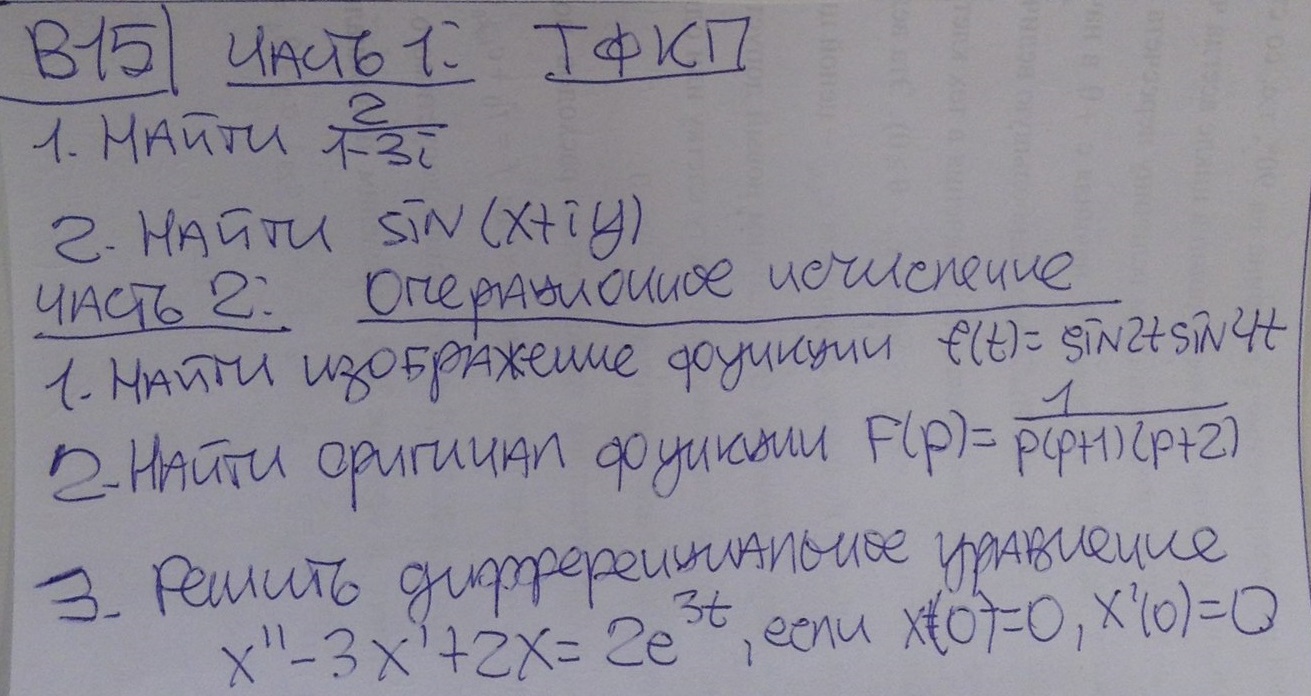 В15 ЧАСТЬ 1: ТФКП
1. НАЙТИ 2/(1-3i)
2. НАЙТИ sin(x+iy)
ЧАСТЬ 2: Операционное исчисление
1. НАЙТИ изображение функции f(t)= sin2t sin4t
2. НАЙТИ оригинал функции F(p)= 1/(p(p+1)(p+2))
3. Решить дифференциальное уравнение
x''-3x'+2x=2e^{3t}, если x(0)=0, x'(0)=0